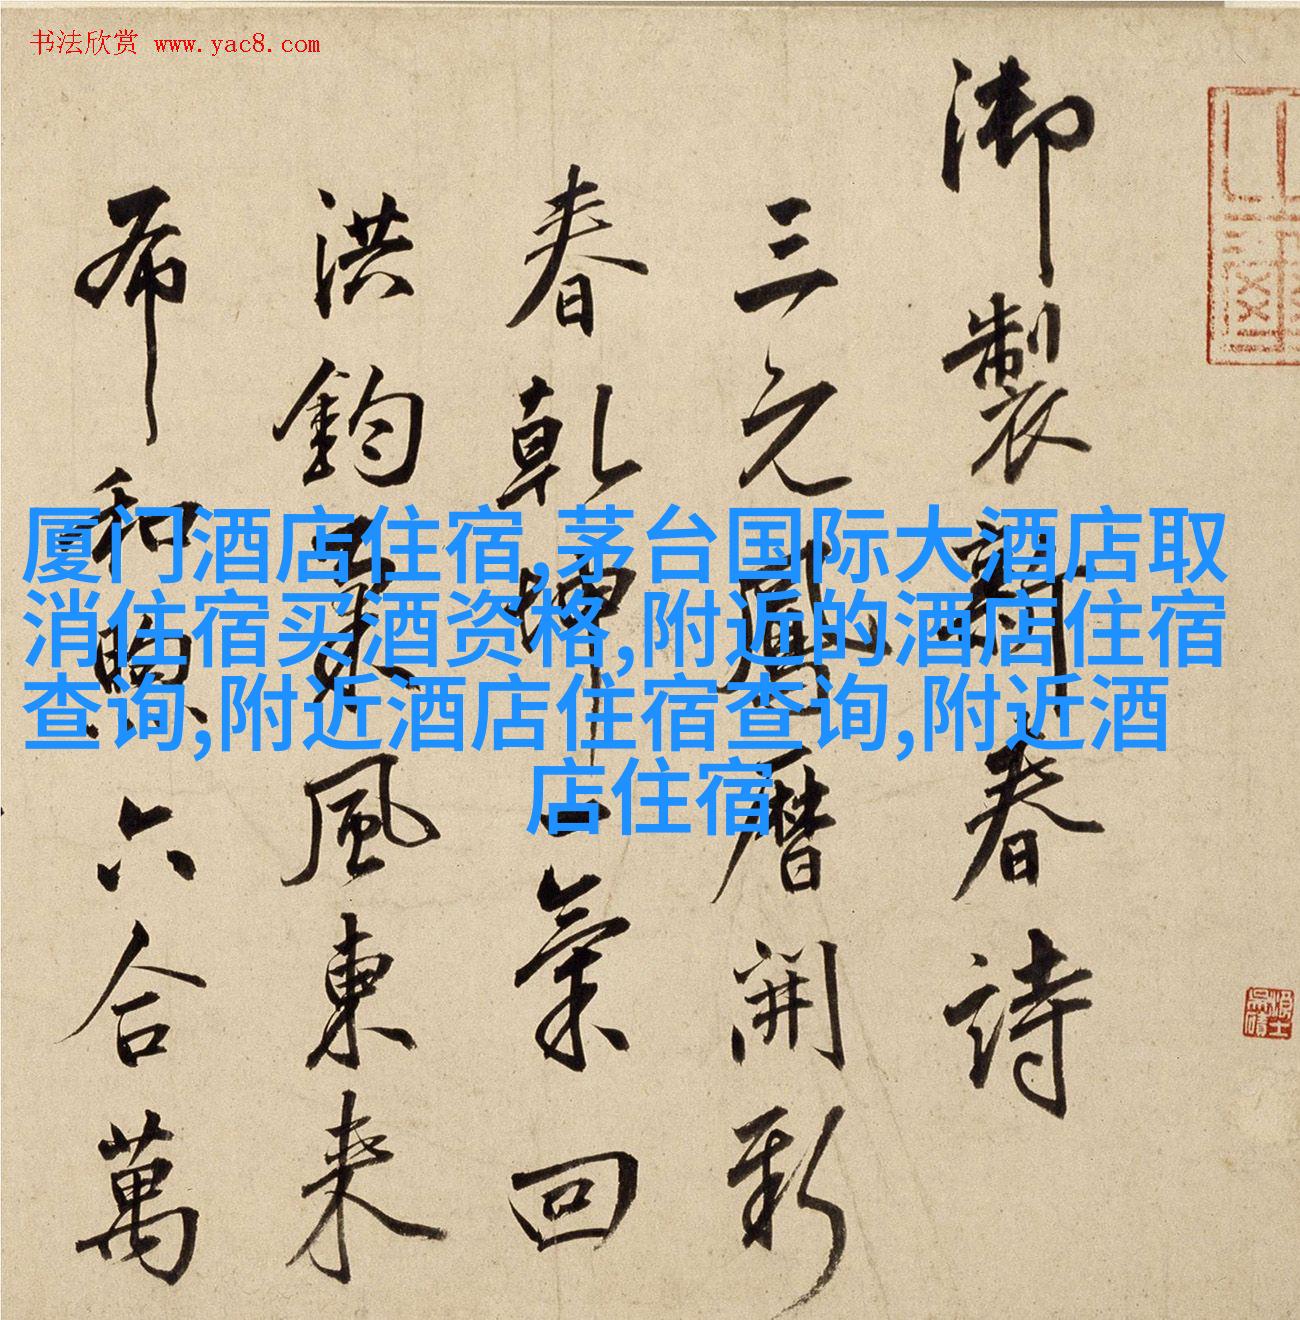 书法欣赏 www.yac8.com
御製新春詩
三元鳳曆開新
春乾坤一氣回
洪鈞
風東来
布和
六合萬
厦门酒店住宿,茅台国际大酒店取
消住宿买酒资格,附近的酒店住宿
查询,附近酒店住宿查询,附近酒
店住宿